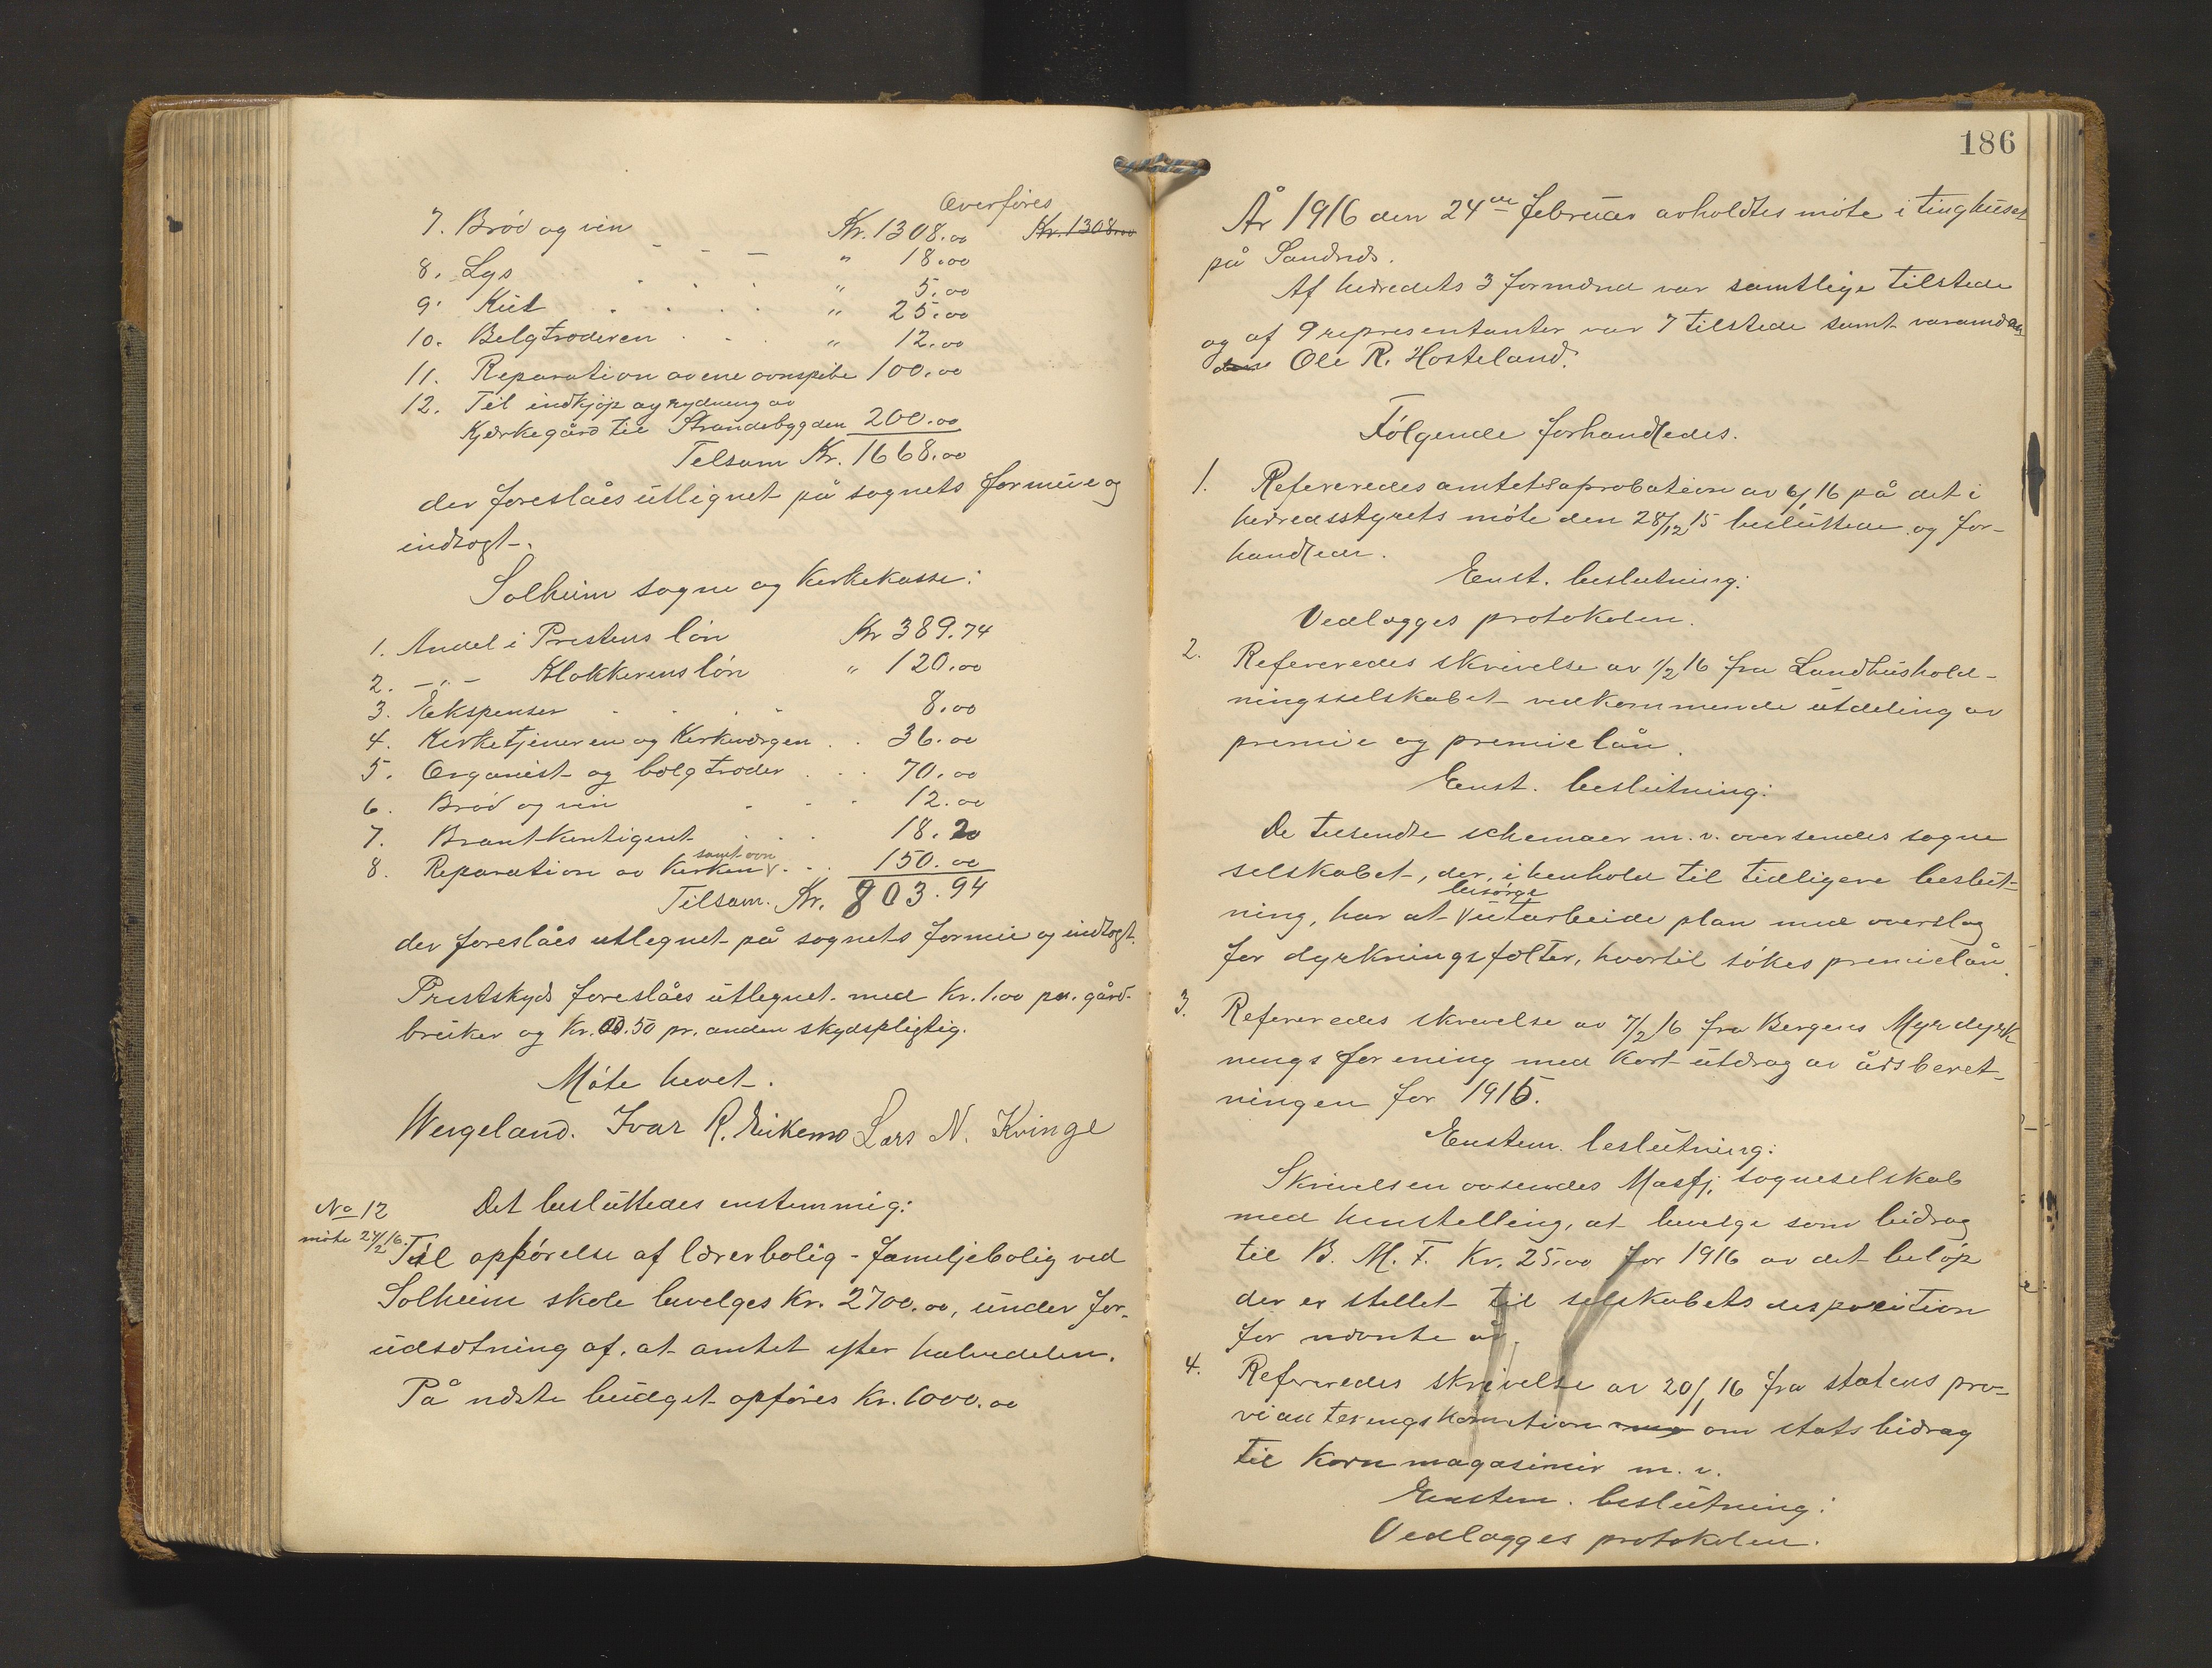 Overføres
7. Brød og vin Kr. 1308.00 Kr. 1308.00
8. Lys " 18.00
9. Kul " 5.00
10. Belgtræderen " 25.00
11. Reparation av ene ovnspibe " 12.00
12. Til indkjøp og rydning av 100.00
Kjerkegård til Strandebygden 200.00
Tilsam Kr. 1668.00
der foreslåes utlignet på sognets formue og
indtægt.
Solheim sogne og Kirkekasse:
1. Andel i Prestens løn Kr 389.74
2. -"- Klokkerens løn " 120.00
3. Ekspenser 8.00
4. Kirketjeneren og Kirkeværgen 36.00
5. Organist og bælgtræder 70.00
6. Brød og vin 12.00
7. Brantkontigent 18.20
samt ovn
8. Reparation av Kirken 150.00
Tilsam. Kr. 803.94
der foreslåes utlignet på sognets formue og indtægt.
Prestskyds foreslåes utlignet med Kr. 1.00 pr. gård-
bruker og Kr. 00.50 pr. anden skydspligtig.
Møte hevet.
Wergeland. Ivar R. Eikemo Lars N. Kvinge
No 12 Det besluttedes enstemmig:
møte 24/2 16.
Til opførelse af lærerbolig - familjebolig ved
Solheim skole bevelges Kr. 2700.00, under for-
udsætning af, at amtet yter halvedelen.
På næste budget opføres Kr. 1000.00
186
År 1916 den 24de februar avholdtes møte i tinghuset
på Sandnes.
Af herredets 3 formænd var samtlige tilstede
og af 9 representanter var 7 tilstede samt varamæn
dene Ole R. Hosteland.
Følgende forhandledes.
1. Refereredes amtets aprobation av 6/1 16 på det i
herredsstyrets møte den 28/12 15 besluttede og for-
handlede.
Enst. beslutning:
Vedlægges protokolen.
2. Refereredes skrivelse av 1/2 16 fra Landhushold-
ningsselskabet vedkommende utdeling av
premie og premielån.
Enst. beslutning:
De tilsendte schemaer m. v. oversendes sogne
selskabet, der, i henhold til tidligere beslut-
besørge
ning, har at utarbeide plan med overslag
for dyrkningsfelter, hvortil søkes premielån.
3. Refereredes skrivelse av 7/2 16 fra Bergens Myrdyrk
nings forening med kort utdrag av årsberet-
ningen for 1915.
Enstem. beslutning:
Skrivelsen oversendes Masfj. sogneselskab
med henstelling, at bevelge som bidrag
til B. M. F. Kr. 25.00 for 1916 av det beløp
der er stillet til selskabets desposition
for nævnte år.
4. Refereredes skrivelse av 20/1 16 fra statens pro-
vianteringskomition om statsbidrag
til Kornmagasiner m. v.
Enstem. beslutning:
Vedlægges protokolen.